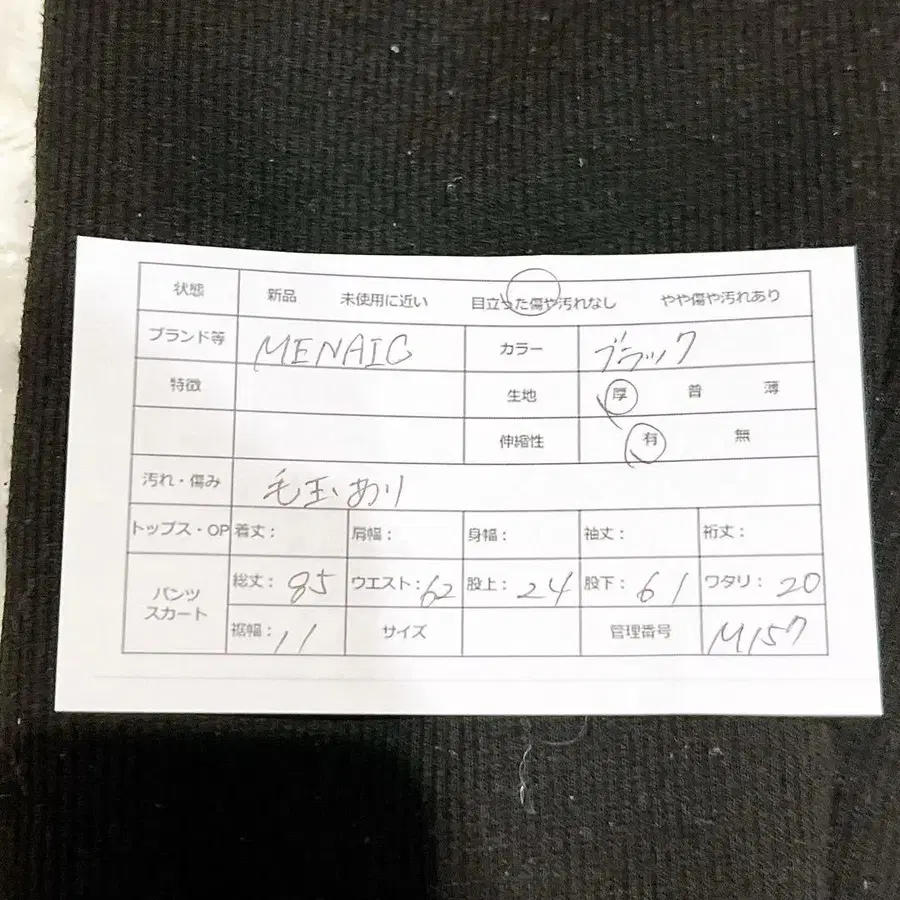 状態 新品 未使用に近い 目立った傷や汚れなし やや傷や汚れあり
ブランド等 MENAIC カラー ブラック
特徴 生地 厚 普 薄
伸縮性 有 無
汚れ・傷み 毛玉あり
トップス・OP 着丈： 肩幅： 身幅： 袖丈： 裄丈：
パンツ スカート 総丈： 85 ウエスト： 62 股上： 24 股下： 61 ワタリ： 20
裾幅： 11 サイズ 管理番号 M157